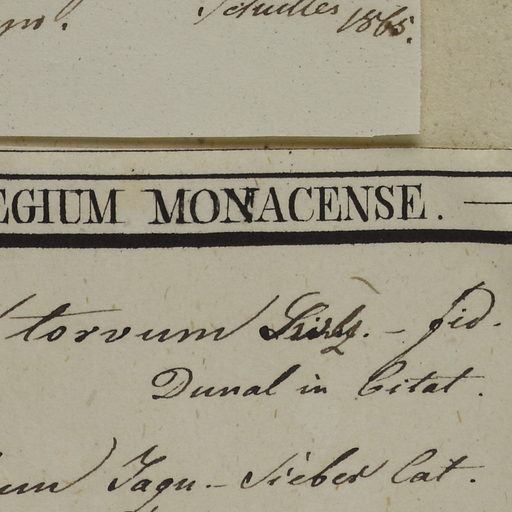 Schultes 1865.
EGIUM MONACENSE.
torvum – fid.
Dunal in Citat.
um Jaqu – Sieber Cat.